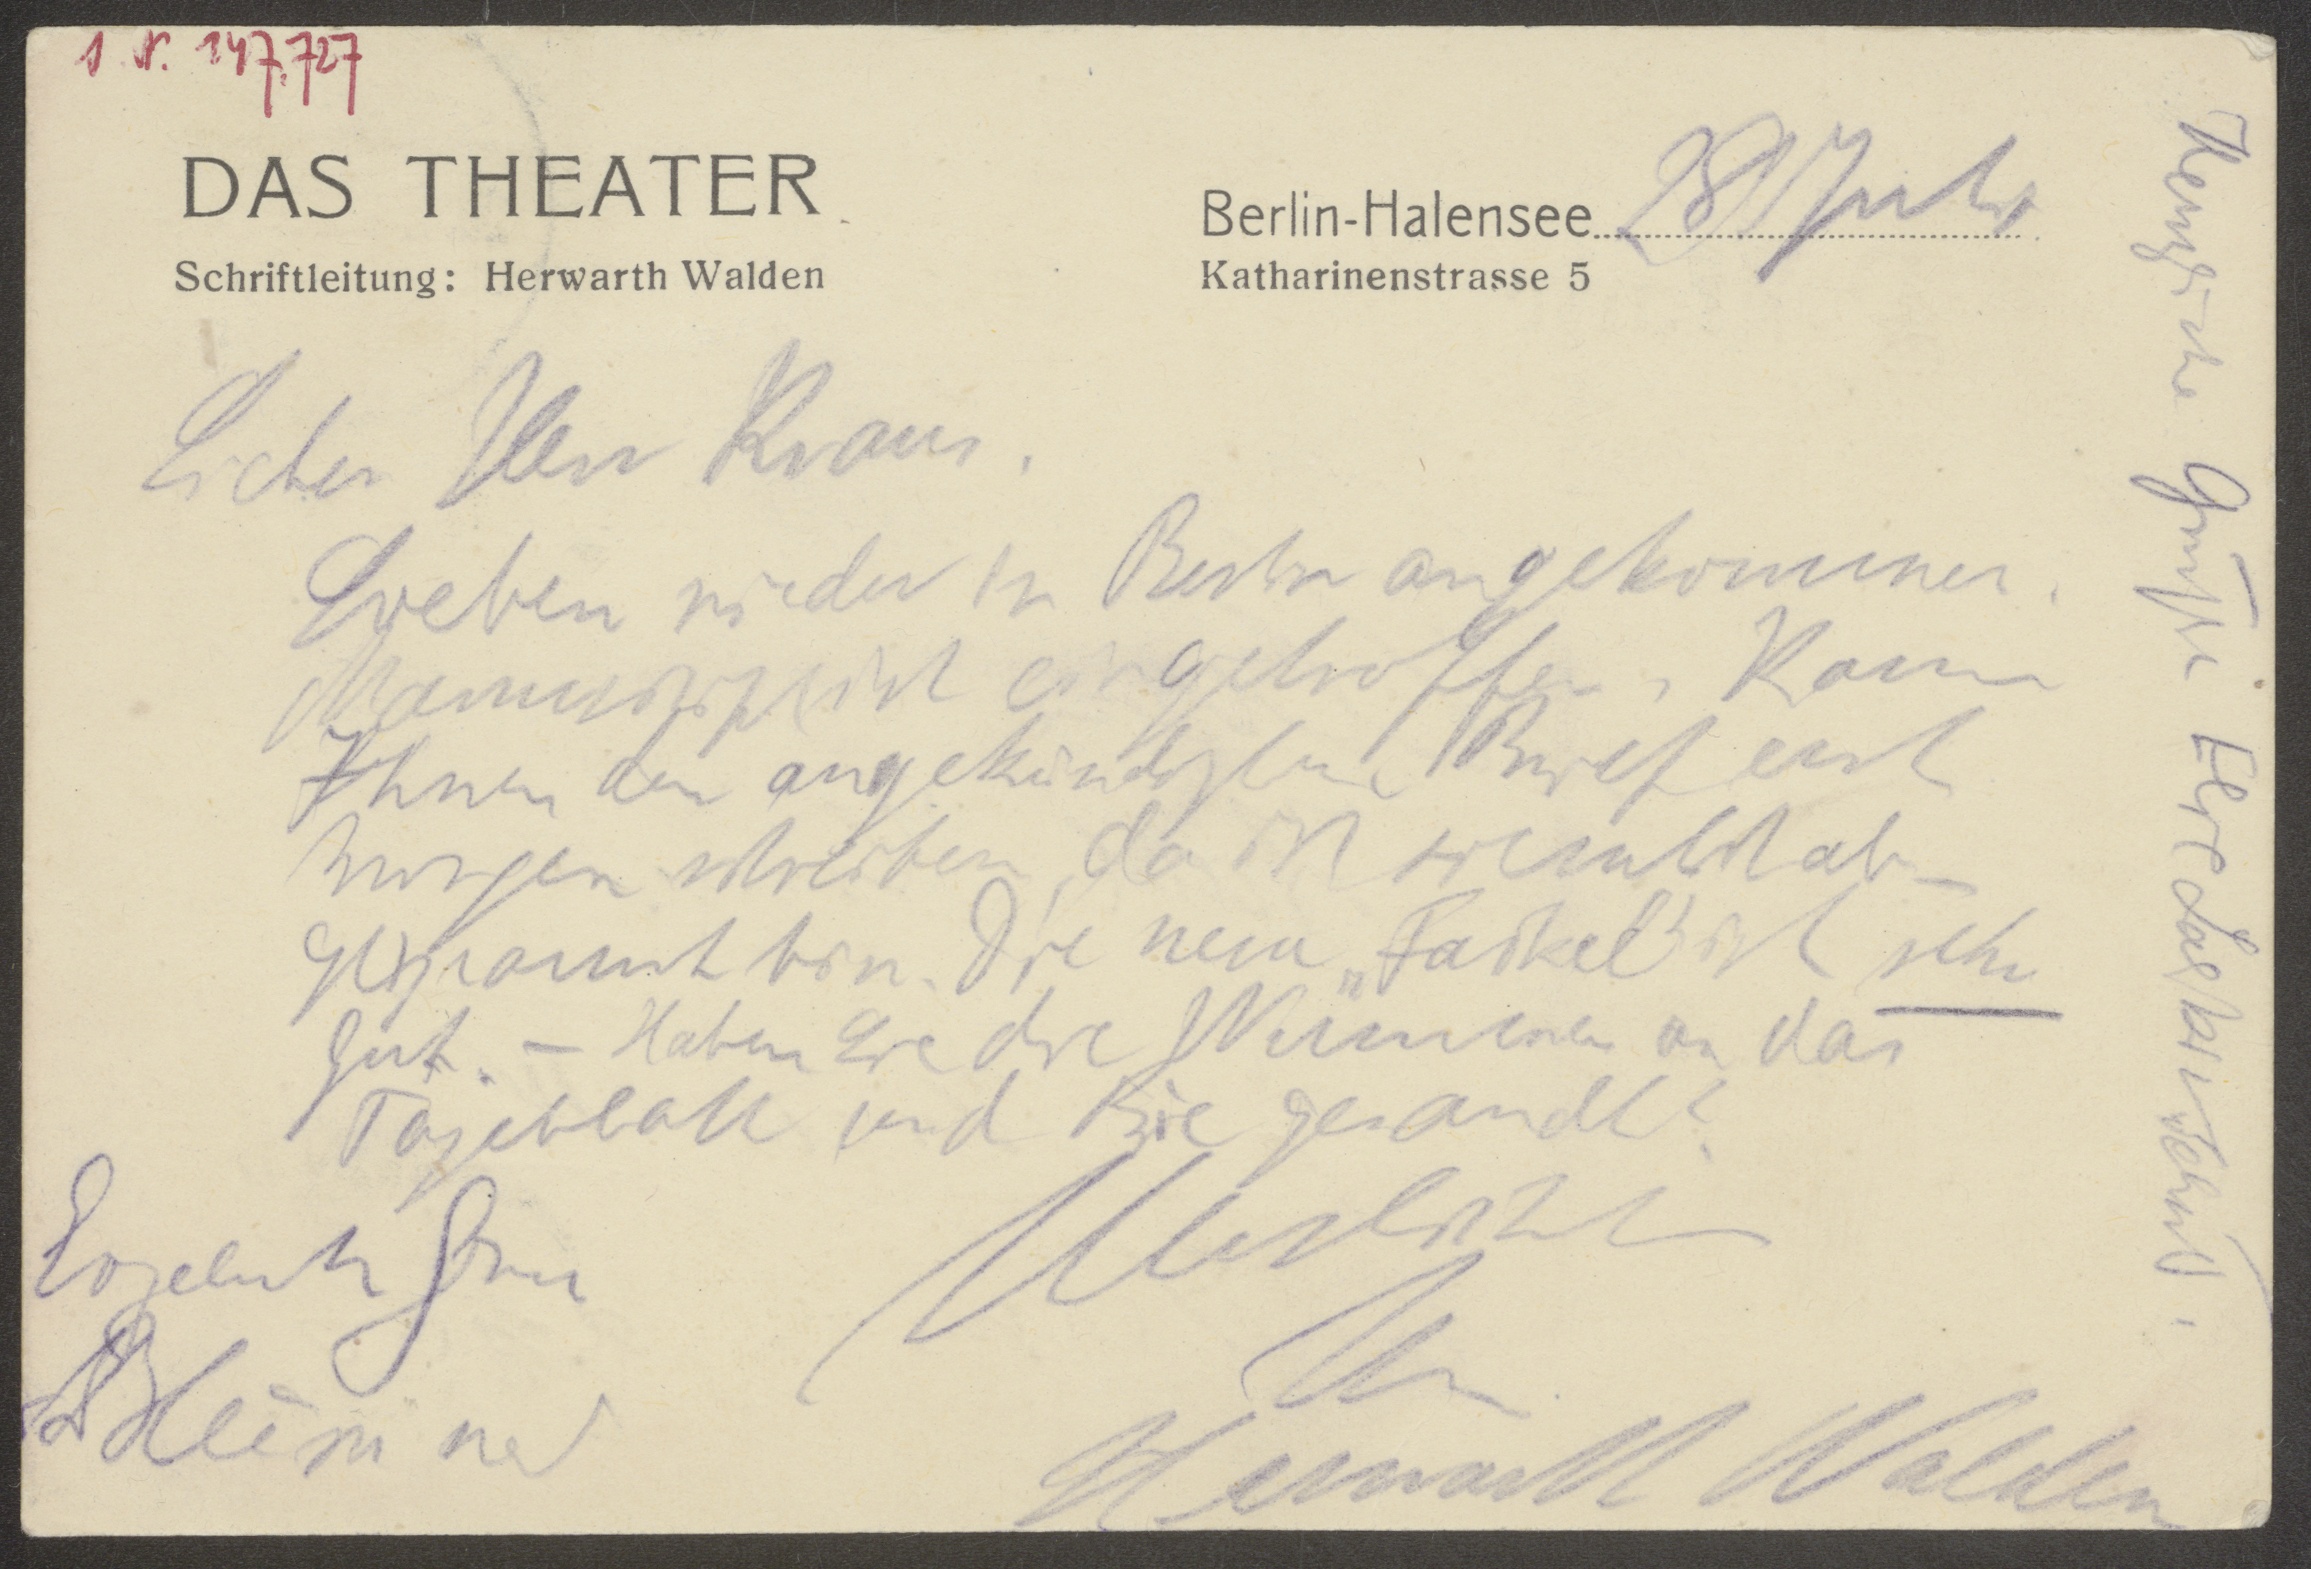 I.N. 147.727
DAS THEATER
Schriftleitung: Herwarth Walden
Berlin-Halensee 28/Juli
Katharinenstrasse 5
Lieber Herr Kraus.
Soeben wieder in Berlin angekommen.
Manuskript ist eingetroffen. Kann
Ihnen den angekündigten Brief erst
morgen schreiben, da ich ziemlich ab-
gespannt bin. Die neue „Fackel" ist sehr
gut. – Haben Sie die Nummern an das
Tageblatt und Bie gesandt?
Herzlichst
Ihr
Herwarth Walden
Ergebenste Grüsse
Blümner
Herzliche Grüße Else Lasker-Schüler.